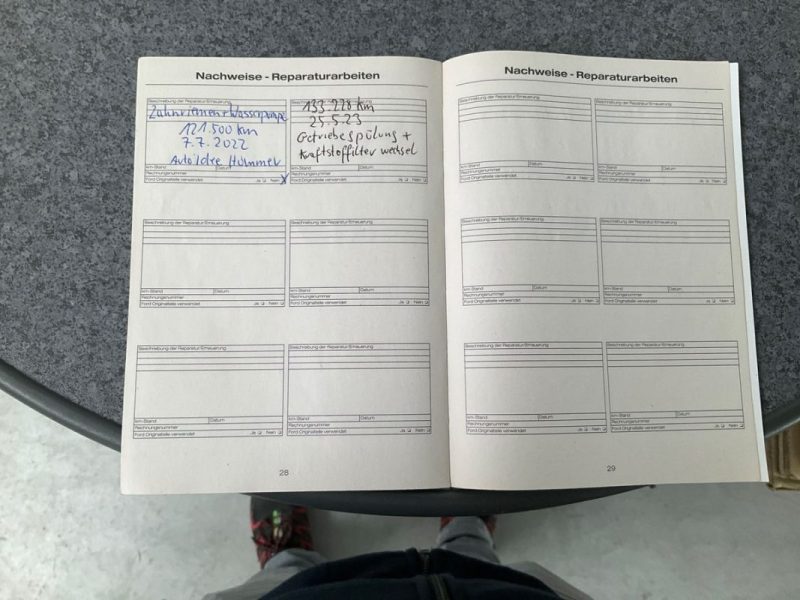 Nachweise - Reparaturarbeiten
Beschreibung der Reparatur/Erneuerung
Zahnriemen + Wasserpumpe
121.500 km
7.7.2022
Autoidee Hummer
km-Stand Datum
Rechnungsnummer
Ford Originalteile verwendet Ja Nein X
Beschreibung der Reparatur/Erneuerung
133.228 km
25.5.23
Getriebespülung +
Kraftstoffilter wechsel
km-Stand Datum
Rechnungsnummer
Ford Originalteile verwendet Ja Nein
Beschreibung der Reparatur/Erneuerung
km-Stand Datum
Rechnungsnummer
Ford Originalteile verwendet Ja Nein
Beschreibung der Reparatur/Erneuerung
km-Stand Datum
Rechnungsnummer
Ford Originalteile verwendet Ja Nein
Beschreibung der Reparatur/Erneuerung
km-Stand Datum
Rechnungsnummer
Ford Originalteile verwendet Ja Nein
Beschreibung der Reparatur/Erneuerung
km-Stand Datum
Rechnungsnummer
Ford Originalteile verwendet Ja Nein
28
Nachweise - Reparaturarbeiten
Beschreibung der Reparatur/Erneuerung
km-Stand Datum
Rechnungsnummer
Ford Originalteile verwendet Ja Nein
Beschreibung der Reparatur/Erneuerung
km-Stand Datum
Rechnungsnummer
Ford Originalteile verwendet Ja Nein
Beschreibung der Reparatur/Erneuerung
km-Stand Datum
Rechnungsnummer
Ford Originalteile verwendet Ja Nein
Beschreibung der Reparatur/Erneuerung
km-Stand Datum
Rechnungsnummer
Ford Originalteile verwendet Ja Nein
Beschreibung der Reparatur/Erneuerung
km-Stand Datum
Rechnungsnummer
Ford Originalteile verwendet Ja Nein
Beschreibung der Reparatur/Erneuerung
km-Stand Datum
Rechnungsnummer
Ford Originalteile verwendet Ja Nein
29